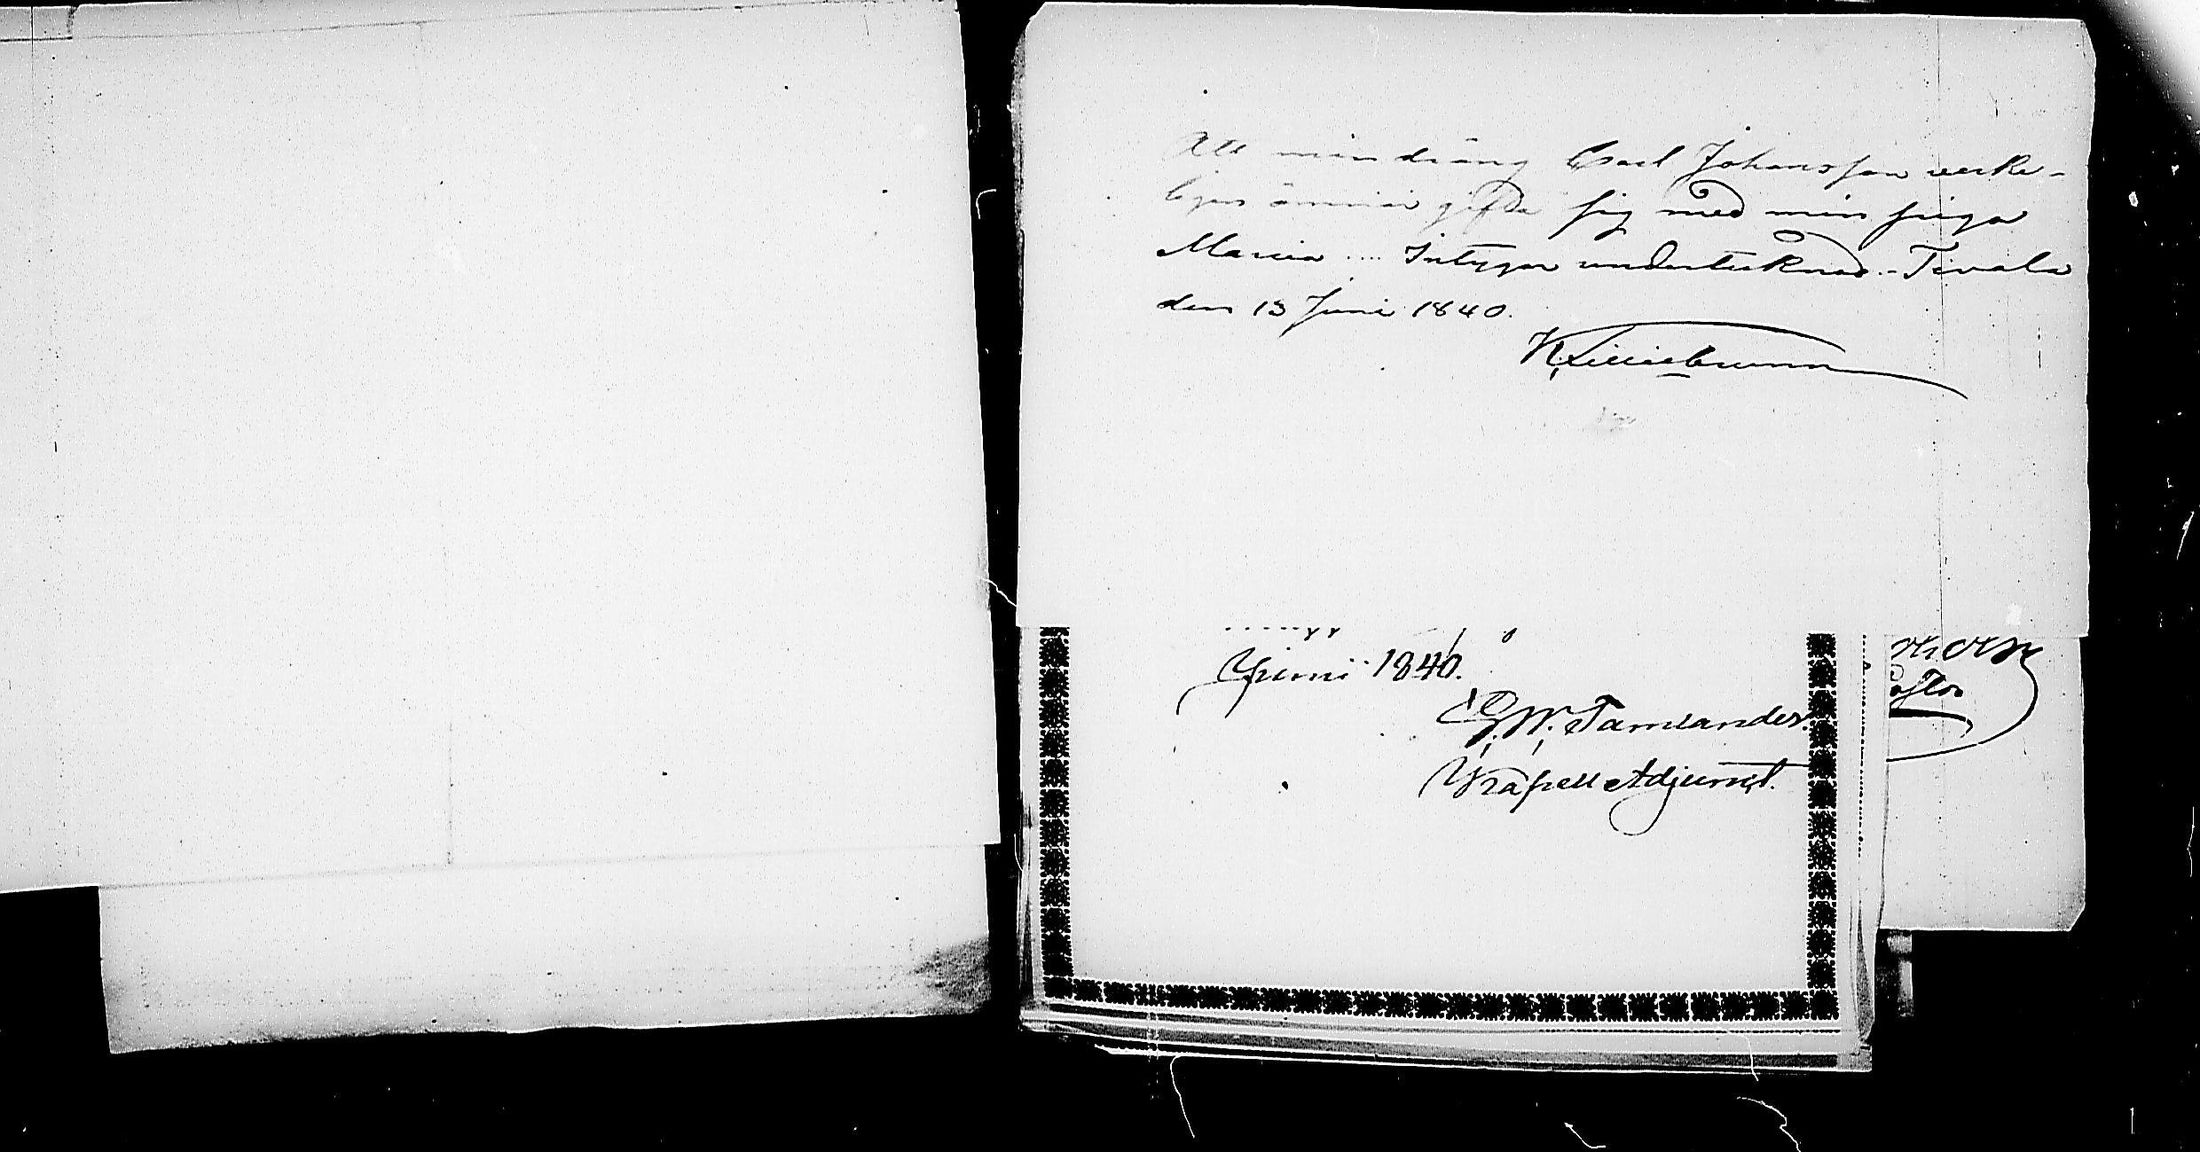 Att min dräng Carl Johansson verke-
ligen ämnar gifta sig med min piga
Maria .... Intygar undertecknad .- Tivala
den 13 Juni 1840.
Juni 1840.
G. W. Tamlander.
Kapell Adjunct.